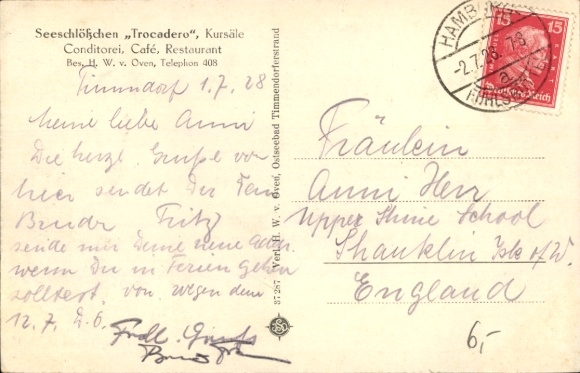 Seeschlößchen „Trocadero“, Kursäle
Conditorei, Café, Restaurant
Bes. H. W. v. Oven, Telephon 408
Timmdorf 1.7.28
Meine liebe Anni
Die herzl. Grüße von
hier sendet Dir Dein
Bruder Fritz
sende mir Deine neue Adr.
wenn Du in Ferien gehen
solltest. von wegen dem
12.7. D.O.
Frdl. Gruß
37287 Verl. H. W. v. Oven, Ostseebad Timmendorferstrand
HAMBURG
-2.7.28. 7-8
15 15
Deutsches Reich
Fräulein
Anni Herr
Upper Shine School
Shanklin Isle of W.
England
6,-